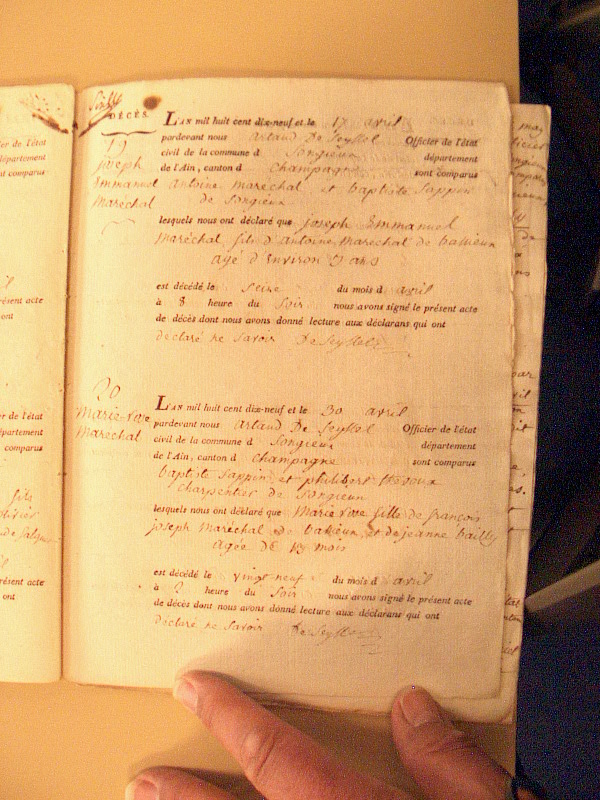 DÉCÈS.
19
joseph
Emmanuel
Maréchal
L'AN mil huit cent dix-neuf et le 17 avril
pardevant nous artaud De Seyssel Officier de l'état
civil de la commune d Songieux département
de l'Ain, canton d champagne sont comparus
antoine maréchal, et baptiste Sappin
de Songieux
lesquels nous ont déclaré que joseph Emmanuel
Maréchal, fils d'antoine Maréchal de bassieux
agé d'Environ 9 ans
est décédé le Seize du mois d avril
à 8 heure du Soir nous avons signé le présent acte
de décès dont nous avons donné lecture aux déclarans qui ont
déclaré ne Savoir DeSeyssel
20
Marie-rose
Maréchal
L'AN mil huit cent dix-neuf et le 30 avril
pardevant nous artaud De Seyssel Officier de l'état
civil de la commune d Songieux département
de l'Ain, canton d champagne sont comparus
baptiste Sappin, et philibert
charpentier de Songieux
lesquels nous ont déclaré que Marie rose fille de françois
joseph Maréchal de bassieux, et de jeanne bailly
agée de mois
est décédé le vingt neuf du mois d avril
à 2 heure du Soir nous avons signé le présent acte
de décès dont nous avons donné lecture aux déclarans qui ont
déclaré ne Savoir DeSeyssel
er de l'état
département
comparus
résent acte
ont
er de l'état
département
comparus
fils
résent acte
ont